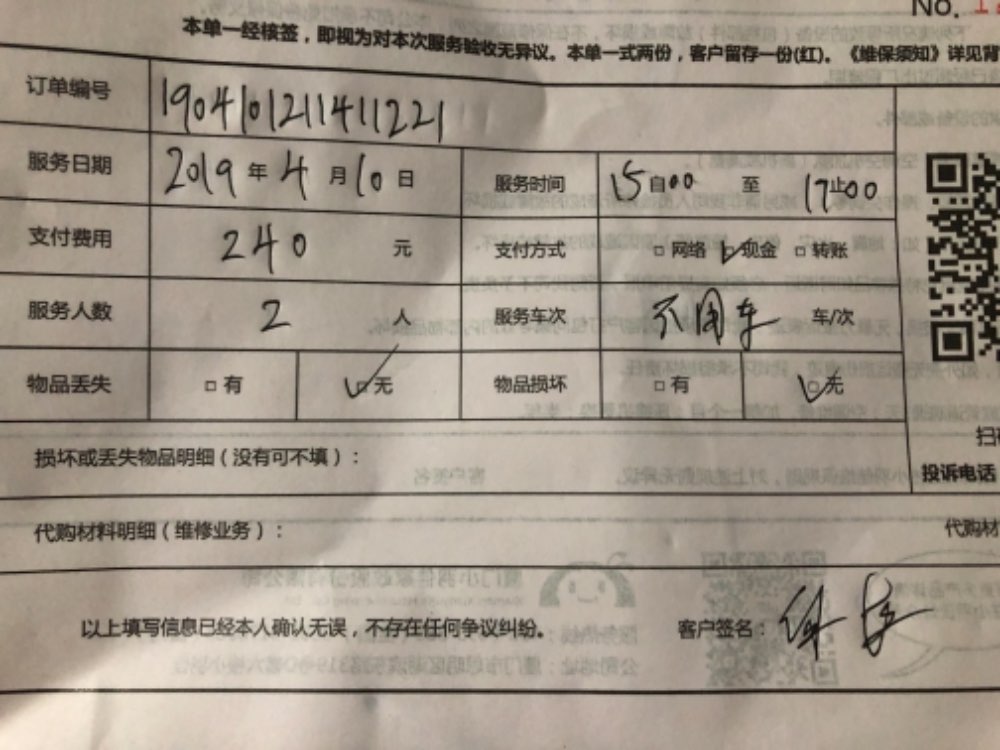 No. 1
本单一经核签，即视为对本次服务验收无异议。本单一式两份，客户留存一份(红)。《维保须知》详见背
订单编号 190410121141122​1
服务日期 2019 年 4 月 10 日 服务时间 15 自00 至 17 止00
支付费用 240 元 支付方式 □ 网络 ☑ 现金 □ 转账
服务人数 2 人 服务车次 不用车 车/次
物品丢失 □ 有 ☑ 无 物品损坏 □ 有 ☑ 无
损坏或丢失物品明细（没有可不填）：
扫
投诉电话
代购材料明细（维修业务）：
代购材
以上填写信息已经本人确认无误，不存在任何争议纠纷。
客户签名：